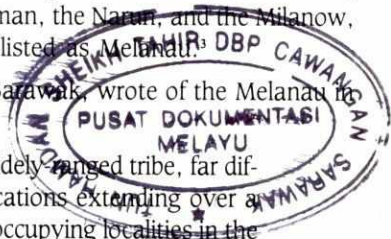 man, the Narun, and the Milanow,
listed as Melanau.³
Sarawak, wrote of the Melanau in
widely-ranged tribe, far dif-
cations extending over a
occupying localities in the
TUN HAMDAN SHEIKH TAHIR DBP CAWANGAN SARAWAK
PUSAT DOKUMENTASI
MELAYU